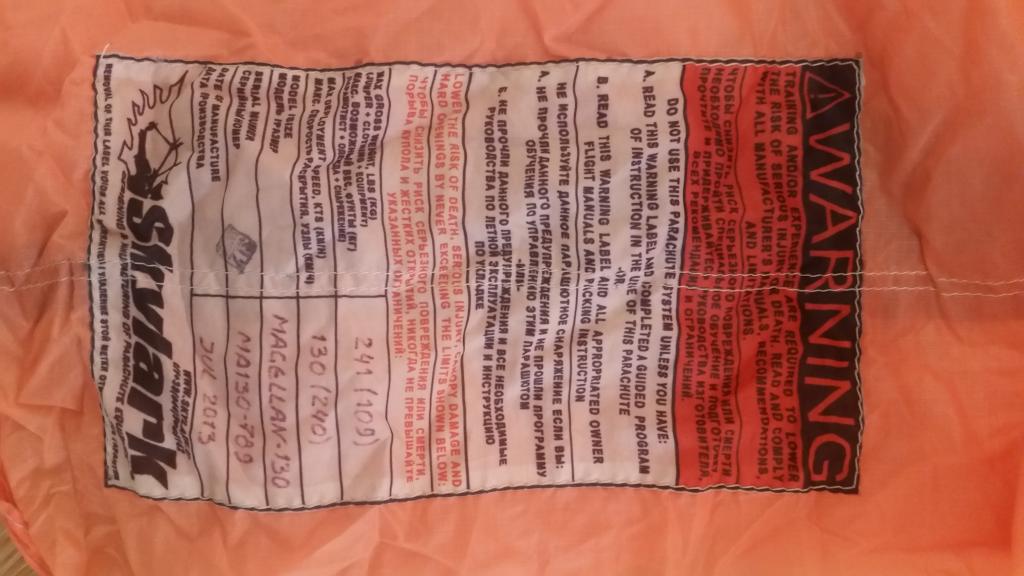 WARNING
TRAINING AND/OR EXPERIENCE ARE REQUIRED TO LOWER
THE RISK OF SERIOUS INJURY OR DEATH. READ AND COMPLY
WITH ALL MANUFACTURER'S MANUALS, RECOMMENDATIONS,
AND LIMITATIONS.
ЧТОБЫ СНИЗИТЬ РИСК СЕРЬЕЗНОГО ПОВРЕЖДЕНИЯ ИЛИ СМЕРТИ
НЕОБХОДИМО ПРОЙТИ СПЕЦИАЛЬНОЕ ОБУЧЕНИЕ И ПОДГОТОВКУ.
ПРОЧТИТЕ И ПРИДЕРЖИВАЙТЕСЬ РУКОВОДСТВА ИЗГОТОВИТЕЛЯ,
ВСЕХ РЕКОМЕНДАЦИЙ И ОГРАНИЧЕНИЙ.
DO NOT USE THIS PARACHUTE SYSTEM UNLESS YOU HAVE:
A. READ THIS WARNING LABEL AND COMPLETED A GUIDED PROGRAM
OF INSTRUCTION IN THE USE OF THIS PARACHUTE
-OR-
B. READ THIS WARNING LABEL AND ALL APPROPRIATED OWNER
FLIGHT MANUALS AND PACKING INSTRUCTION
НЕ ИСПОЛЬЗУЙТЕ ДАННОЕ ПАРАШЮТНОЕ СНАРЯЖЕНИЕ ЕСЛИ ВЫ:
A. НЕ ПРОЧЛИ ДАННОГО ПРЕДУПРЕЖДЕНИЯ И НЕ ПРОШЛИ ПРОГРАММУ
ОБУЧЕНИЯ ПО УПРАВЛЕНИЮ ЭТИМ ПАРАШЮТОМ
-ИЛИ-
Б. НЕ ПРОЧЛИ ДАННОГО ПРЕДУПРЕЖДЕНИЯ И ВСЕ НЕОБХОДИМЫЕ
РУКОВОДСТВА ПО ЛЕТНОЙ ЭКСПЛУАТАЦИИ И ИНСТРУКЦИЮ
ПО УКЛАДКЕ
LOWER THE RISK OF DEATH, SERIOUS INJURY, CANOPY DAMAGE AND
HARD OPENINGS BY NEVER EXCEELING THE LIMITS SHOWN BELOW:
ЧТОБЫ СНИЗИТЬ РИСК СЕРЬЕЗНОГО ПОВРЕЖДЕНИЯ ИЛИ СМЕРТИ,
ПОРЫВА КУПОЛА И ЖЕСТКИХ ОТКРЫТИЙ, НИКОГДА НЕ ПРЕВЫШАЙТЕ
УКАЗАННЫХ ОГРАНИЧЕНИЙ:
MAX GROSS WEIGHT, LBS (KG)
(JUMPER + CLOTHING + EQUIPMENT)
МАКС. ВОЗМОЖНЫЙ ВЕС, ФУНТЫ (КГ)
(ПАРАШЮТИСТ + ОДЕЖДА + СНАРЯЖЕНИЕ)
241 (109)
MAX DEPLOYMENT SPEED, KTS (KM/H)
МАКС. СКОРОСТЬ РАСКРЫТИЯ, УЗЛЫ (КМ/Ч)
130 (240)
MODEL/SIZE
МОДЕЛЬ/РАЗМЕР
MAGELLAN-130
SERIAL NUMBER
СЕРИЙН/НОМЕР
DATE OF MANUFACTURE
ДАТА ПРОИЗВОДСТВА
JUL 2013
Skylark
REMOVAL OF THIS LABEL VOIDS ALL
УДАЛЕНИЕ ЭТОЙ МЕТКИ